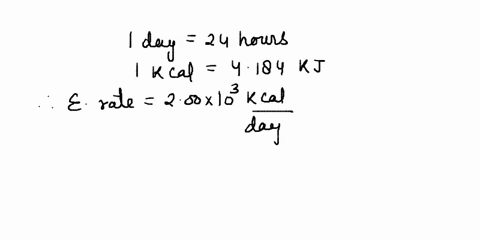 1 day = 24 hours
1 Kcal = 4.184 KJ
∴ E. rate = 2.00×10³ Kcal/day